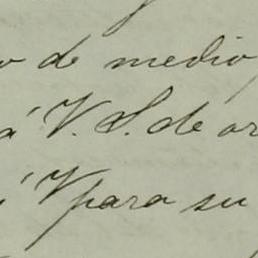 o de medio
á V. S. de or
á V para su